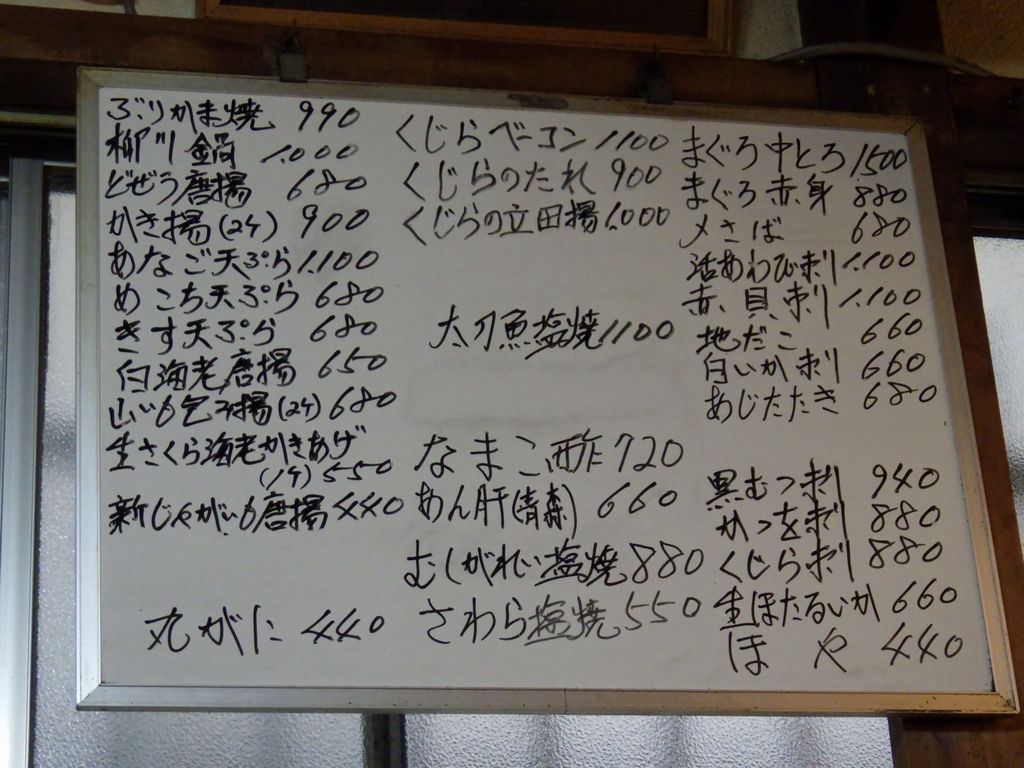 ぶりかま焼 990
柳川鍋 1.000
どぜう唐揚 680
かき揚(2ケ) 900
あなご天ぷら 1.100
めごち天ぷら 680
きす天ぷら 680
白海老唐揚 650
山いも包み揚(2ケ) 680
生さくら海老かきあげ
(1ケ) 550
新じゃがいも唐揚 440
丸がに 440
くじらベーコン 1100
くじらのたれ 900
くじらの立田揚 1.000
太刀魚塩焼 1100
なまこ酢 720
あん肝(青森) 660
むしがれい塩焼 880
さわら塩焼 550
まぐろ中とろ 1,500
まぐろ赤身 880
〆さば 680
活あわび刺 1.100
赤貝刺 1.100
地だこ 660
白いか刺 660
あじたたき 680
黒むつ刺 940
かつを刺 880
くじら刺 880
生ほたるいか 660
ほや 440